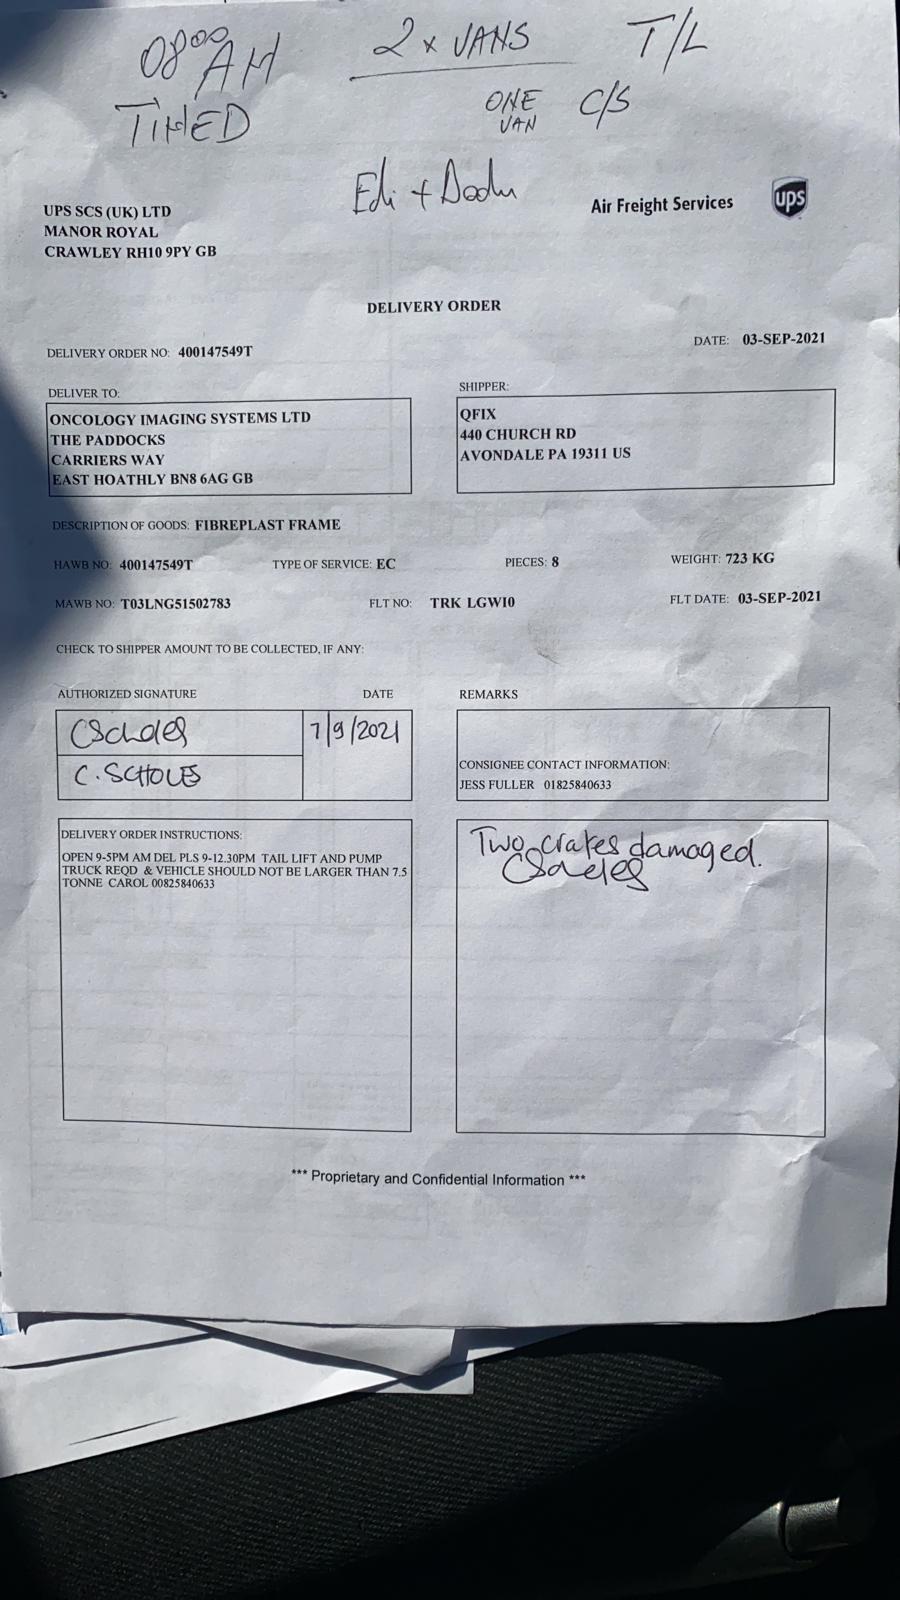 08⁰⁰ AM
TIMED
2 x VANS
T/L
ONE VAN
C/S
Edi + Dodu
UPS SCS (UK) LTD
MANOR ROYAL
CRAWLEY RH10 9PY GB
Air Freight Services
ups
DELIVERY ORDER
DELIVERY ORDER NO: 400147549T
DATE: 03-SEP-2021
DELIVER TO:
ONCOLOGY IMAGING SYSTEMS LTD
THE PADDOCKS
CARRIERS WAY
EAST HOATHLY BN8 6AG GB
SHIPPER:
QFIX
440 CHURCH RD
AVONDALE PA 19311 US
DESCRIPTION OF GOODS: FIBREPLAST FRAME
HAWB NO: 400147549T TYPE OF SERVICE: EC PIECES: 8 WEIGHT: 723 KG
MAWB NO: T03LNG51502783 FLT NO: TRK LGWI0 FLT DATE: 03-SEP-2021
CHECK TO SHIPPER AMOUNT TO BE COLLECTED, IF ANY:
AUTHORIZED SIGNATURE DATE
CScholes 7/9/2021
C. SCHOLES
REMARKS
CONSIGNEE CONTACT INFORMATION:
JESS FULLER 01825840633
DELIVERY ORDER INSTRUCTIONS:
OPEN 9-5PM AM DEL PLS 9-12.30PM TAIL LIFT AND PUMP
TRUCK REQD & VEHICLE SHOULD NOT BE LARGER THAN 7.5
TONNE CAROL 00825840633
Two crates damaged.
CScholes
*** Proprietary and Confidential Information ***